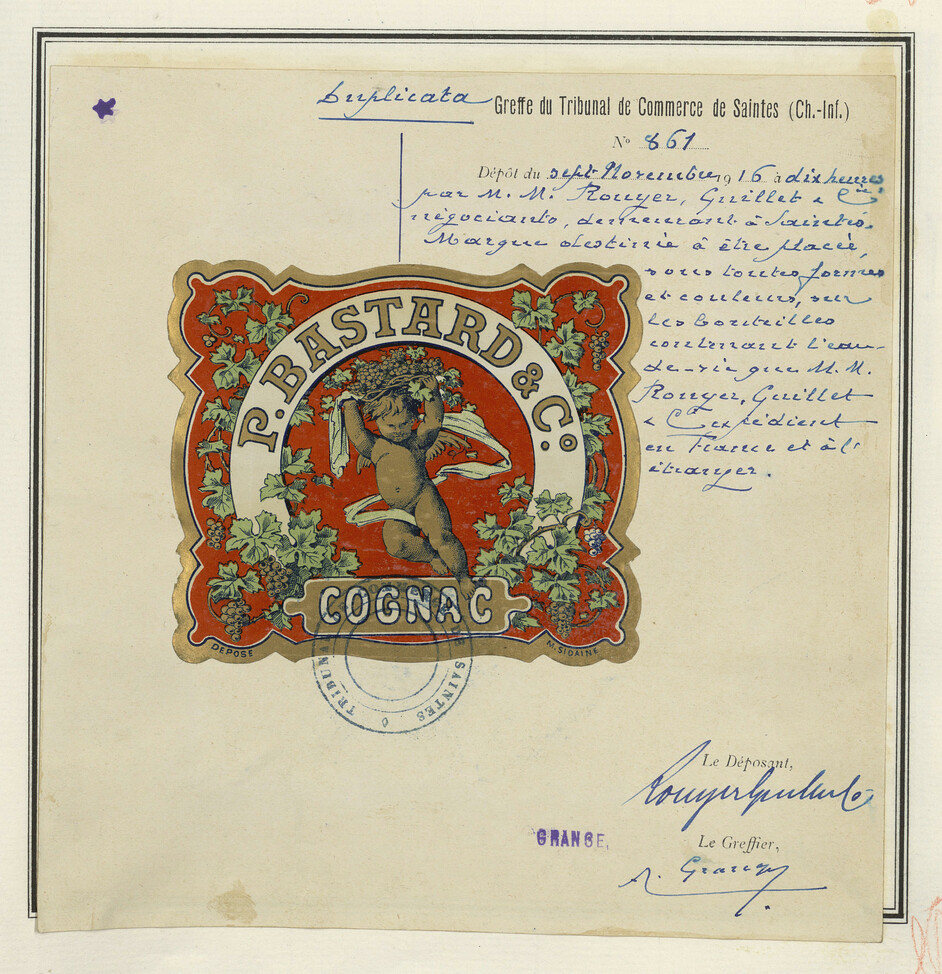 Duplicata
Greffe du Tribunal de Commerce de Saintes (Ch.-Inf.)
N° 861
Dépôt du sept Novembre 1916 à dix heures
par M. M. Rouyer, Guillet & Cie
négociants, demeurant à Saintes.
Marque destinée à être placée,
sous toutes formes
et couleurs, sur
les bouteilles
contenant l'eau-
de-vie que M. M.
Rouyer, Guillet
& Cie expédient
en France et à l'
étranger.
P. BASTARD & Co
COGNAC
DÉPOSÉ
M. SIDAINE
TRIBUNAL
DE SAINTES
Le Déposant,
Rouyer Guillet & Co
GRANGE,
Le Greffier,
A. Grange